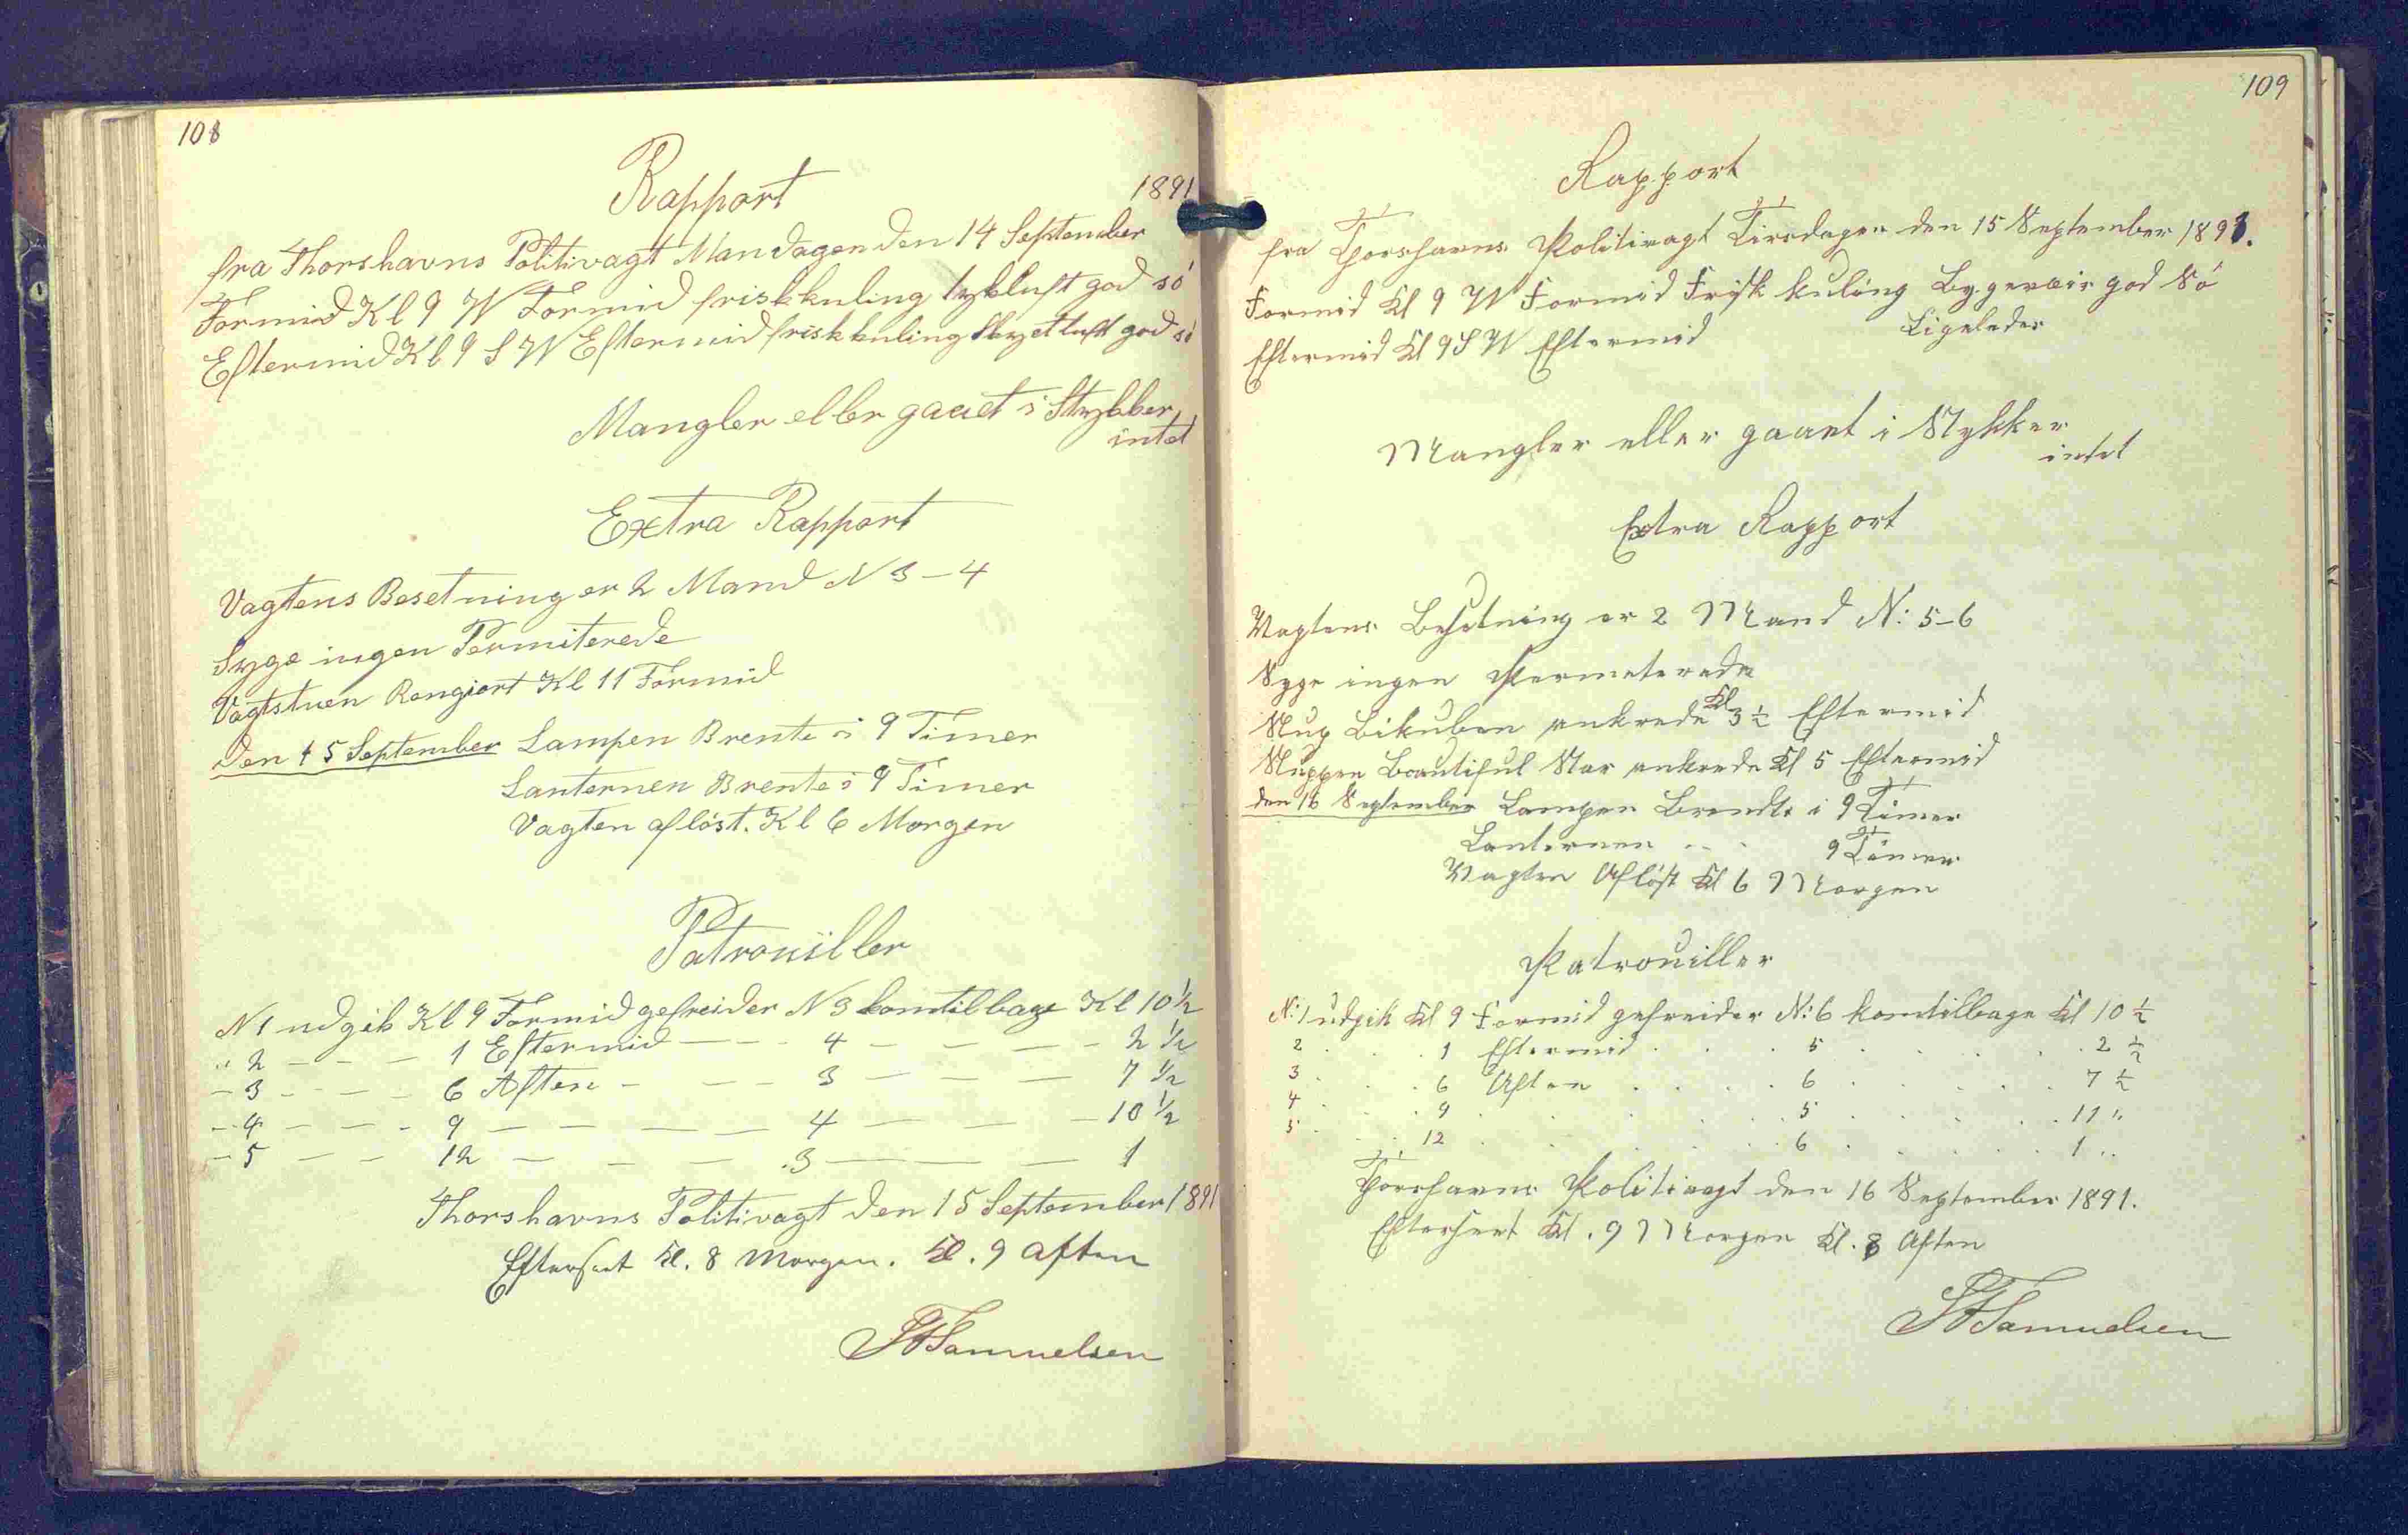 108
Rapport
1891
fra Thorshavns Politivagt Mandagen den 14 September
Formid Kl 9 W Formid friskkuling tykluft god só
Eftermid Kl 9 S W Eftermid friskkuling Skyetluft god só
Mangler eller gaaet i Stykker
intet
Extra Rapport
Vagtens Besetning er 2 Mand N 3-4
Syge ingen Permiterede
Vagtstuen Rengjort Kl 11 Formid
den 15 September Lampen Brente i 9 Timer
Lanternen Brente i 9 Timer
Vagten aflöst. Kl 6 Morgen
Patrouiller
N 1 udgik Kl 9 Formid gefreider N 3 komtilbage Kl 10 1/2
" 2 - - - 1 Eftermid - - - 4 - - - - 2 1/2
- 3 - - - 6 Aften - - - 3 - - - 7 1/2
- 4 - - - 9 - - - - - 4 - - - 10 1/2
- 5 - - 12 - - - - 3 - - - 1
Thorshavns Politivagt den 15 September 1891
Efterseet Kl. 8 Morgen. Kl. 9 Aften
Samuelsen
109
Rapport
fra Thorshavns Politivagt Tirsdagen den 15 September 1891.
Formid Kl 9 W Formid Frisk kuling Bygeveir god Só
Eftermid Kl 9 S W Eftermid Ligeledes
Mangler eller gaaet i Stykker
intet
Extra Rapport
Vagtens Besetning er 2 Mand N: 5-6
Syge ingen Permeterede
Slup Bikuben ankrede Kl 3 1/2 Eftermid
Sluppen Beautiful Star ankrede Kl 5 Eftermid
den 16 September Lampen Brendte i 9 Timer
Lanternen - - - 9 Timer
Vagten Aflöst Kl 6 Morgen
Patrouiller
N: 1 udgik Kl 9 Formid gefreider N: 6 komtilbage Kl 10 1/2
2 . . . 1 Eftermid . . . 5 . . . . 2 1/2
3 . . . 6 Aften . . . . 6 . . . . 7 1/2
4 . . . 9 . . . . . 5 . . . . 11 "
5 . . . 12 . . . . . 6 . . . . 1 "
Thorshavns Politivagt den 16 September 1891.
Efterseet Kl. 9 Morgen Kl. 8 Aften
Samuelsen